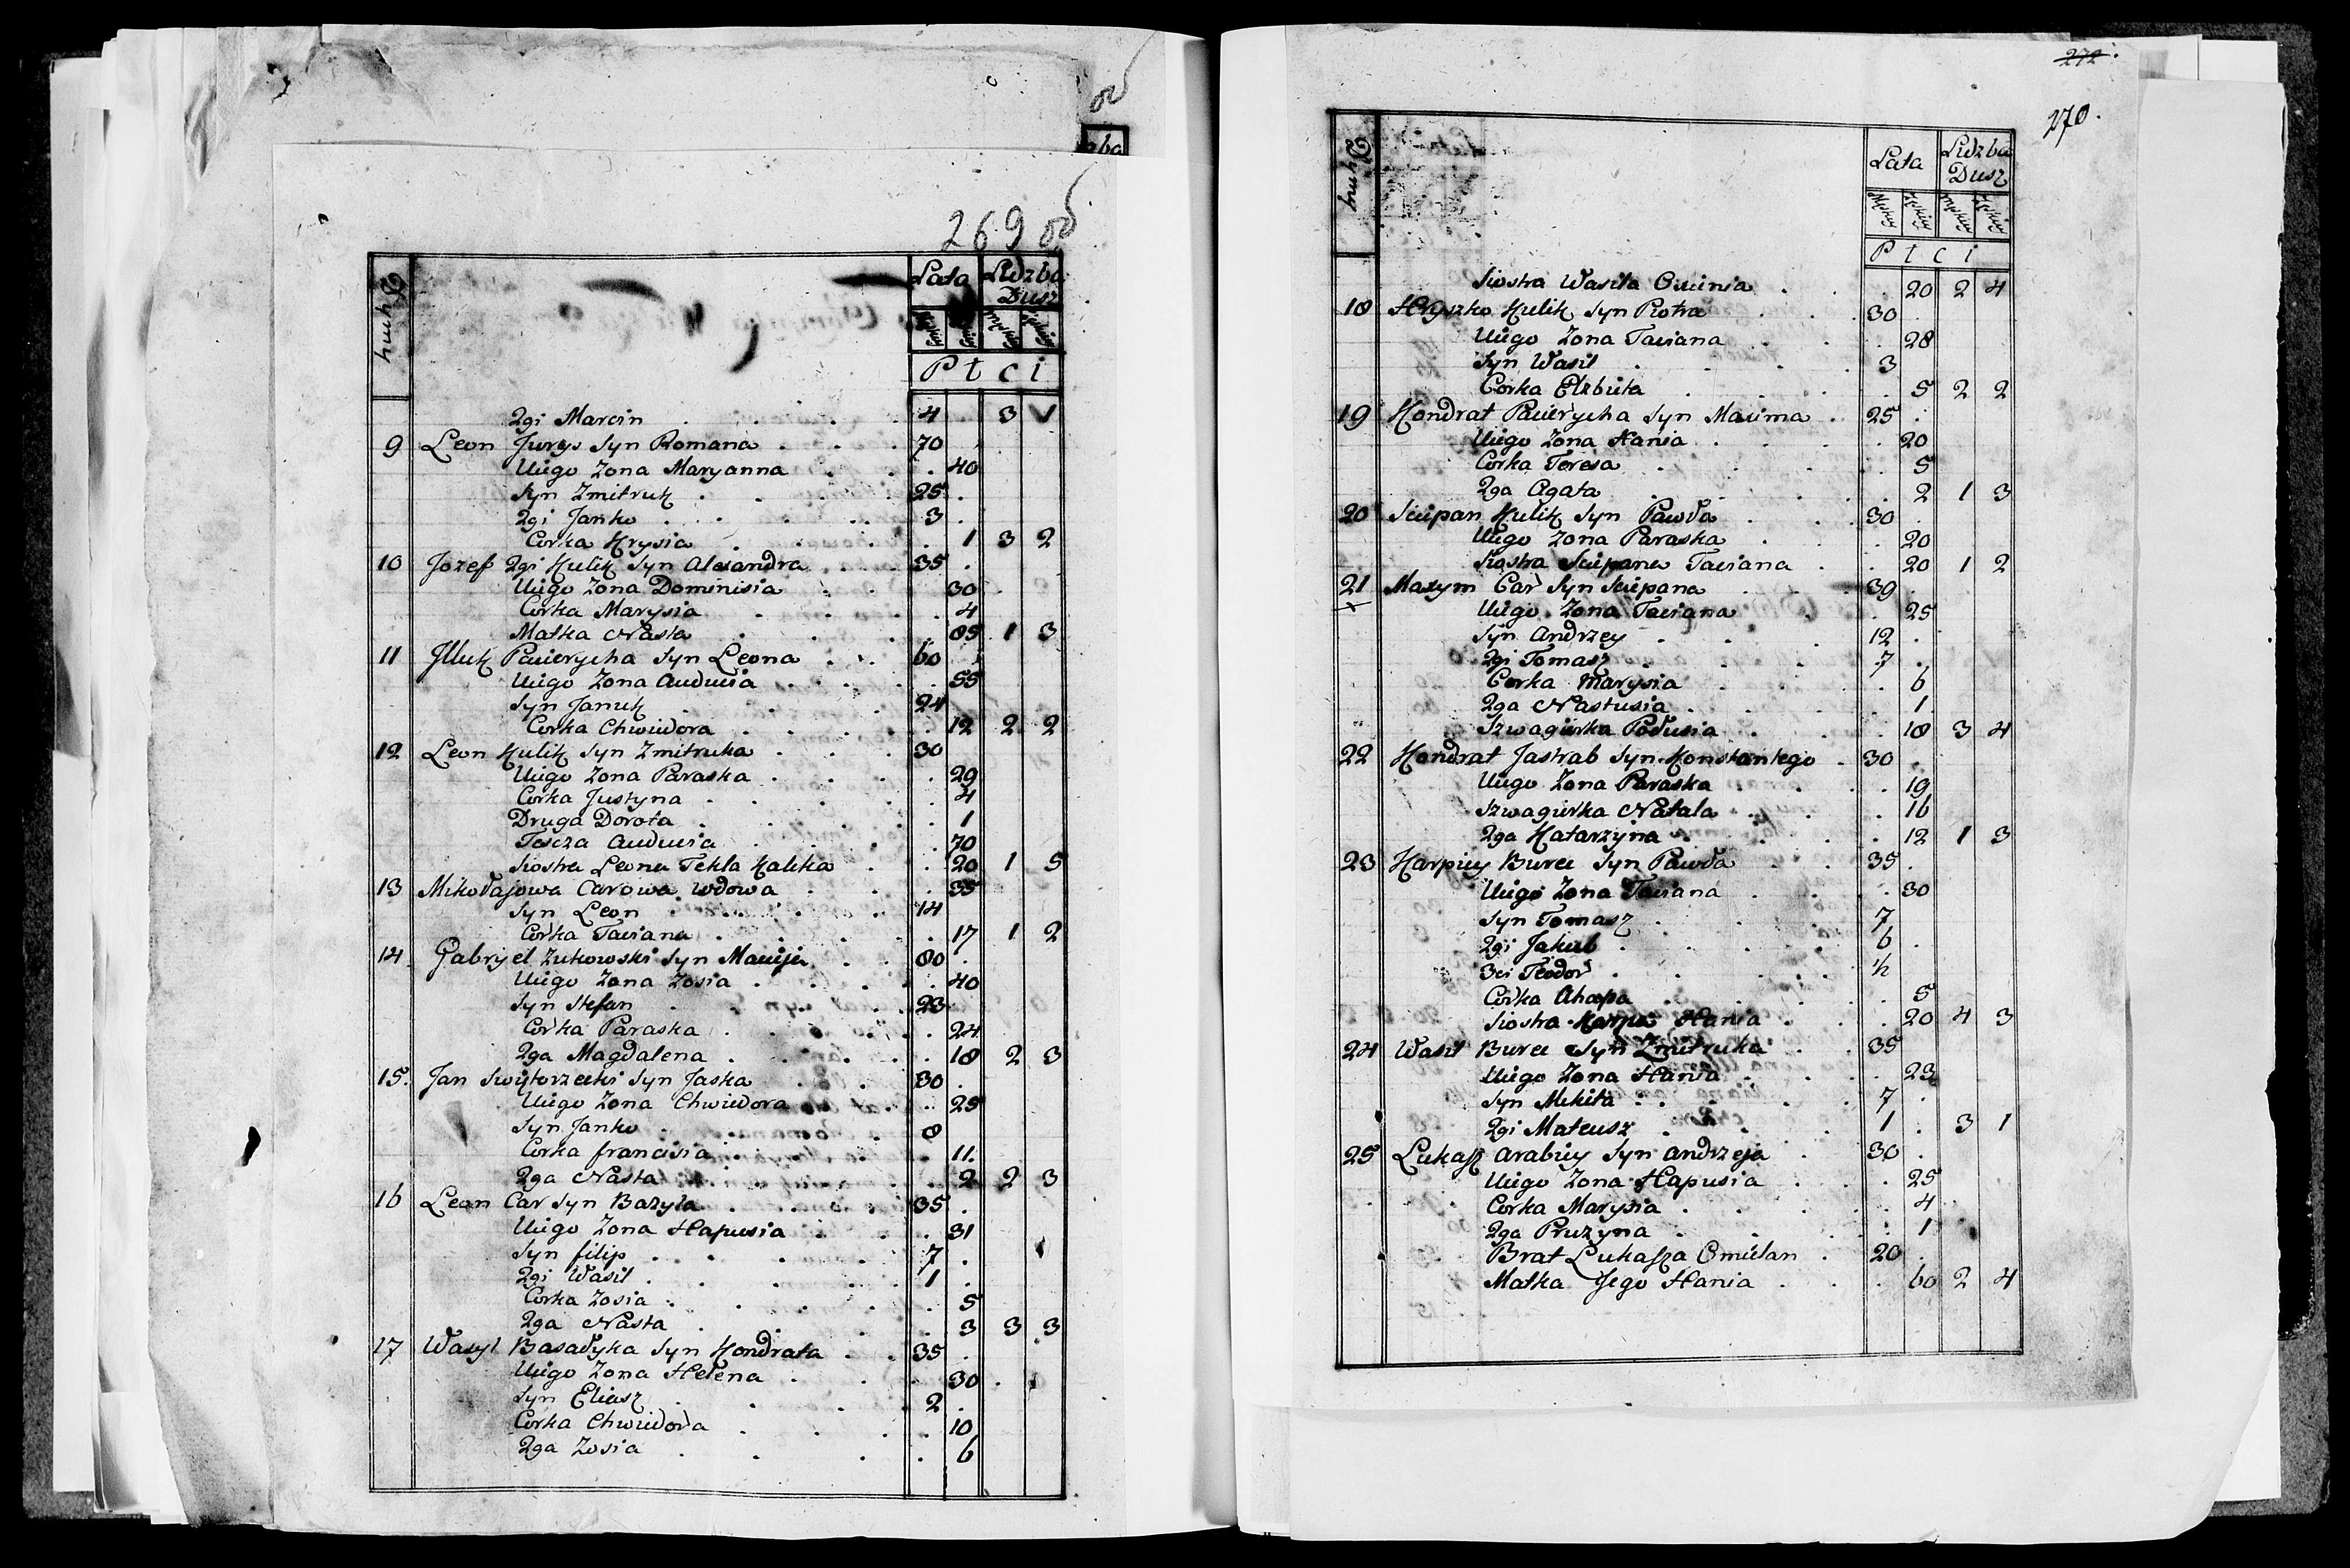 ba
269 об
Chaty
Lata Liczba Dusz
Płci
2gi Marcin 4 3 1
9 Leon Jurys Syn Romana 70
Uiego Zona Maryanna 40
Syn Zmitruk 25
2gi Janko 3
Corka Krysia 1 3 2
10 Jozef 2gi Kulik Syn Alexandra 35
Uiego Zona Dominisia 30
Corka Marysia 4
Matka Nasta 85 1 3
11 Illuk Pacierycha Syn Leona 60
Uiego Zona Audocia 55
Syn Januk 24
Corka Chwiedora 12 2 2
12 Leon Kulik Syn Zmitruka 30
Uiego Zona Paraska 29
Corka Justyna 4
Druga Dorota 1
Tescza Audocia 70
Siostra Leona Tekla Kaleka 20 1 5
13 Mikołajowa Carowa wdowa 35
Syn Leon 14
Corka Taciana 17 1 2
14 Gabryel Zukowski Syn Macieja 80
Uiego Zona Zosia 40
Syn Stefan 23
Corka Paraska 24
2ga Magdalena 18 2 3
15. Jan Swiętorzecki Syn Jaska 30
Uiego Zona Chwiedora 25
Syn Janko 8
Corka francisia 11.
2ga Nasta 2 2 3
16 Leon Car Syn Bazyla 35
Uiego Zona Hapusia 31
Syn filip 7
2gi Wasil 1
Corka Zosia 5
2ga Nasta 3 3 3
17 Wasyl Basałyka Syn Kondrata 35
Uiego Zona Helena 30
Syn Eliasz 2
Corka Chwiedora 10
2ga Zosia 6
272
270.
Chaty
Lata Liczba Dusz
Płci
Siostra Wasila 20 2 4
18 Hryszko Kulik Syn Piotra 30
Uiego Zona Taciana 28
Syn Wasil 3
Corka Elzbieta 5 2 2
19 Kondrat Pacierycha Syn Maxima 25
Uiego Zona Hania 20
Corka Teresa 5
2ga Agata 2 1 3
20 Sciepan Kulik Syn Pawła 30
Uiego Zona Paraska 20
Siostra Sciepana Taciana 20 1 2
21 Maxym Car Syn Sciepana 39
Uiego Zona Taciana 25
Syn Andrzey 12
2gi Tomasz 7
Corka Marysia 6
2ga Nastusia 1
Szwagierka Połusia 18 3 4
22 Kondrat Jastrab Syn Konstantego 30
Uiego Zona Paraska 19
Szwagierka Natala 16
2ga Katarzyna 12 1 3
23 Karpiey Burec Syn Pawła 35
Uiego Zona Taciana 30
Syn Tomasz 7
2gi Jakub 6
3ci Teodor ½
Corka Ahapa 5
Siostra Karpie Hania 20 4 3
24 Wasil Burec Syn Zmitruka 35
Uiego Zona Hania 23
Syn Mikita 7
2gi Mateusz 1 3 1
25 Łukasz Arabiey Syn Andrzeja 30
Uiego Zona Hapusia 25
Corka Marysia 4
2ga Pruzyna 1
Brat Łukasza Omielan 20
Matka Jego Hania 60 2 4